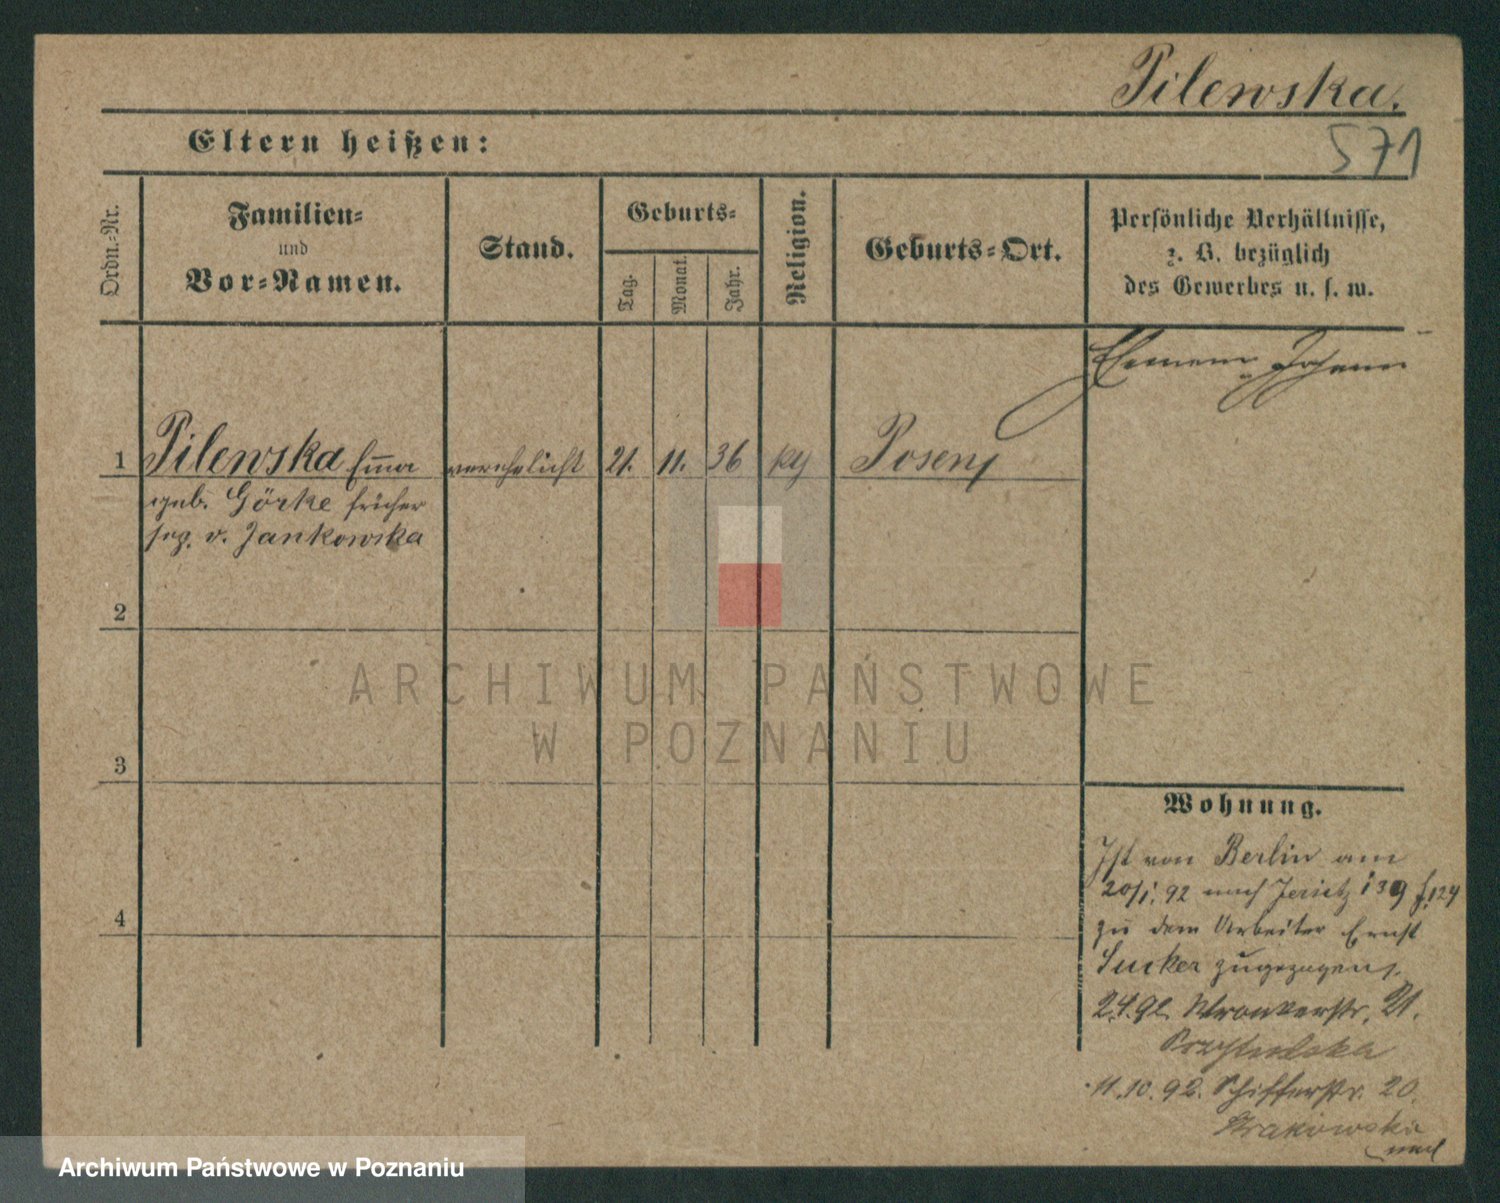 Pilewska.
Eltern heißen:
571
Ordn.-Nr.
Familien-
und
Vor-Namen.
Stand.
Geburts-
Tag.
Monat.
Jahr.
Religion.
Geburts-Ort.
Persönliche Verhältnisse,
z. B. bezüglich
des Gewerbes u. s. w.
1 Pilewska Emma verehelicht 21. 11. 36 Posen
geb. Görke früher
v. Jankowska
2
3
4
Wohnung.
Ist von Berlin am
20/1. 92 nach Jersitz
zu dem Arbeiter Ernst
Sucker zugezogen.
2.4.92 Wronkerstr. 21.
11.10.92. Schifferstr. 20.
Krakowska
ARCHIWUM PAŃSTWOWE
W POZNANIU
Archiwum Państwowe w Poznaniu